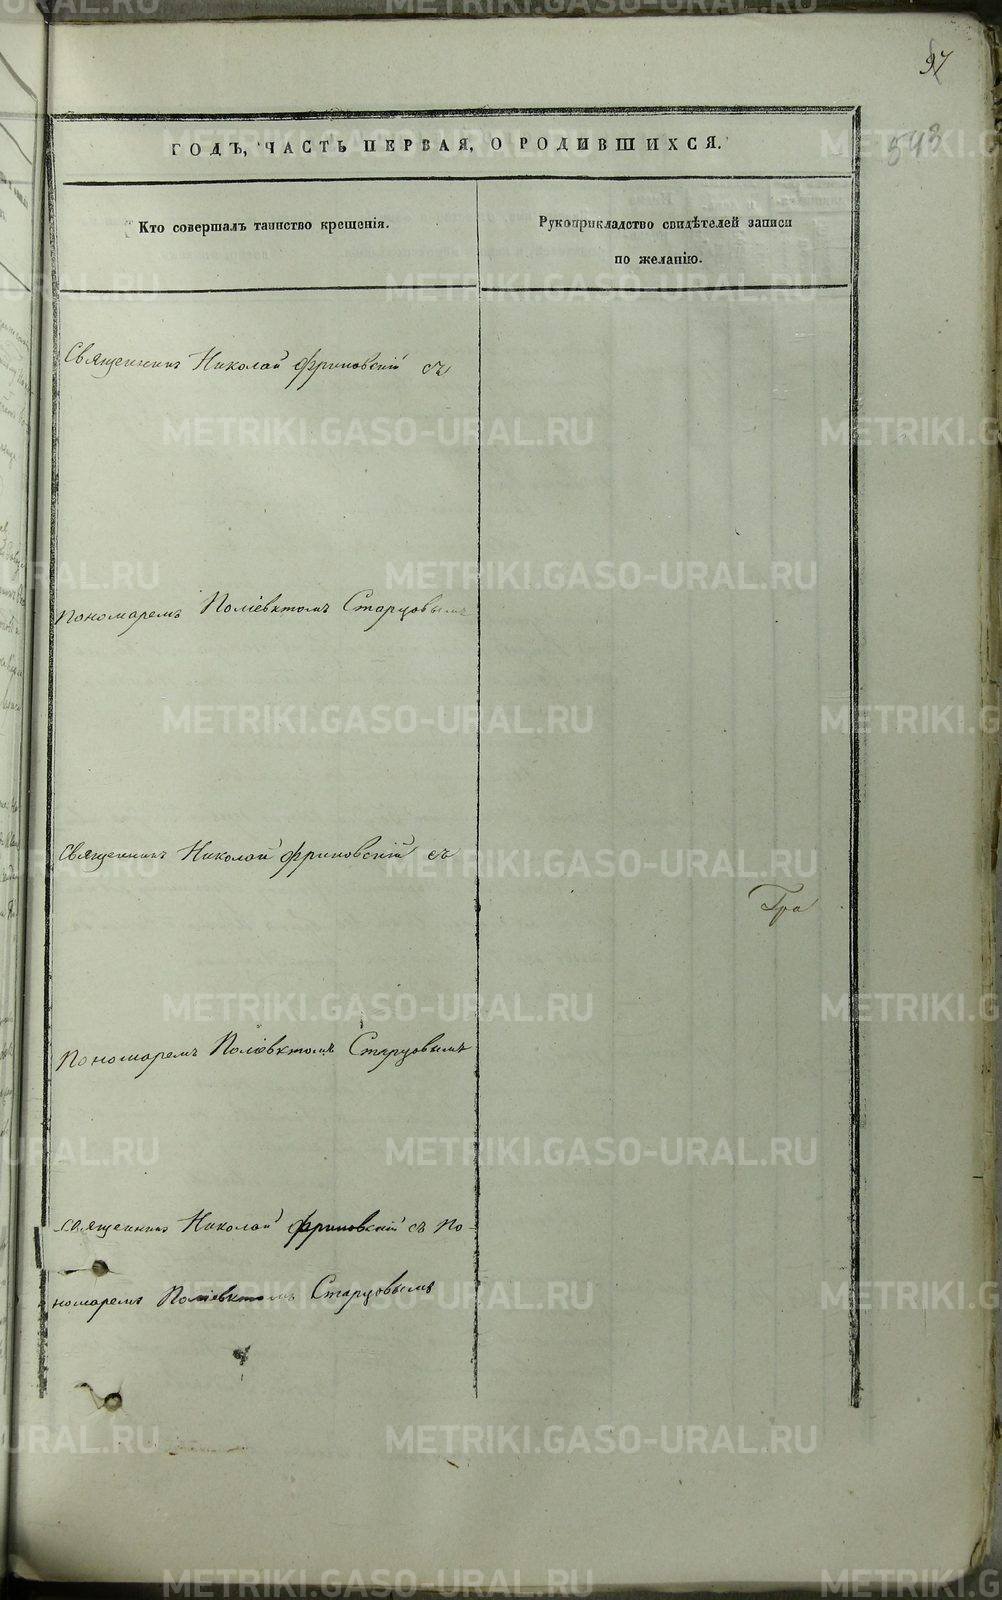 37
543
ГОДЪ, ЧАСТЬ ПЕРВАЯ, О РОДИВШИХСЯ.
Кто совершалъ таинство крещенія.
Рукоприкладство свидѣтелей записи
по желанію.
Священникъ Николай Фриновскій съ
Пономаремъ Поліевктомъ Старцовымъ
Священникъ Николай Фриновскій съ
Гра
Пономаремъ Поліевктомъ Старцовымъ
Священникъ Николай Фриновскій съ По-
номаремъ Поліевктомъ Старцовымъ
METRIKI.GASO-URAL.RU